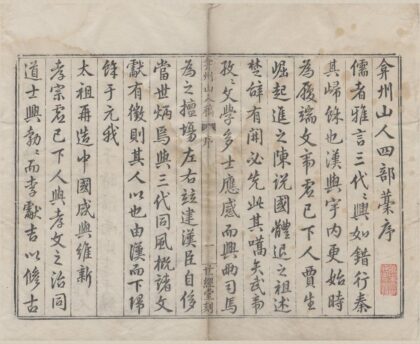 弇州山人四部藁序
儒者雅言三代之興如錯行秦
其歸餘也漢興宇内更始時
為䝉瑞文帝虚已下人賈生
崛起進之陳說國體退之祖述
楚辭有開必先此其嚆矢武帝
孜孜文學多士應感而興兩司馬
為之擅場左右竝建漢臣自侈
當世炳焉與三代同風概諸文
獻有徵則其人以也由漢而下歸
餘于元我
太祖再造中國咸與維新
孝宗虚已下人興孝文之治同
道士興勃勃而李獻吉以脩古
弇州山人藁
序
一
世經堂刻